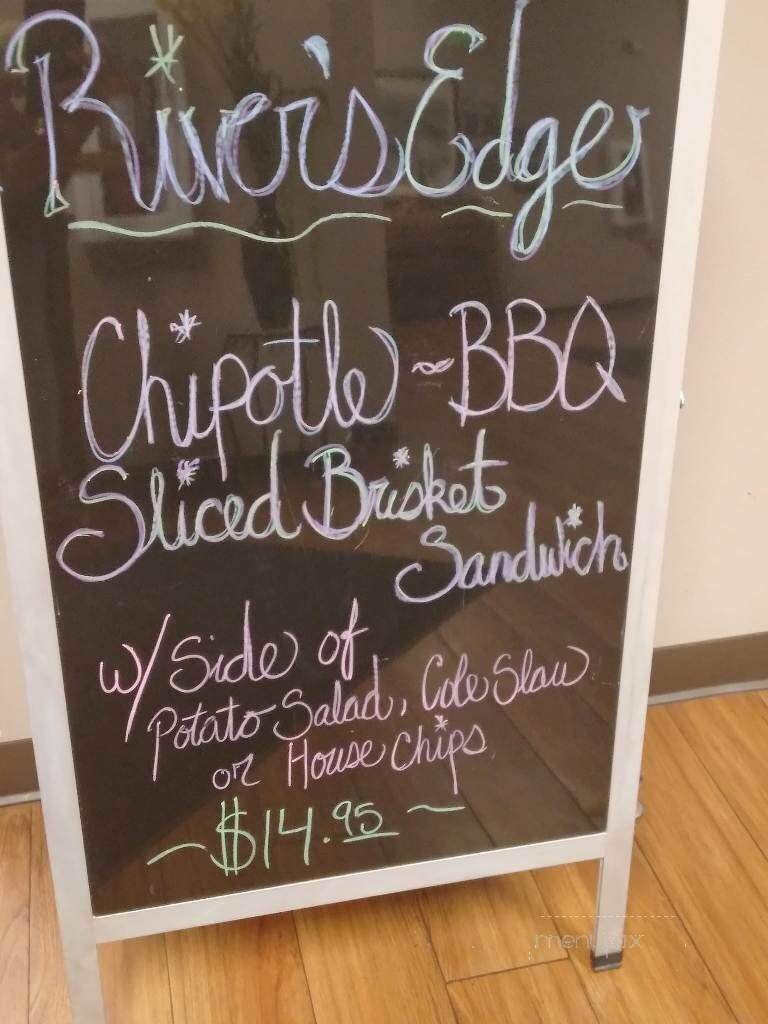 River's Edge
Chipotle ~ BBQ
Sliced Brisket
Sandwich
w/ Side of
Potato Salad, Cole Slaw
or House Chips
~ $14.95 ~
menupix